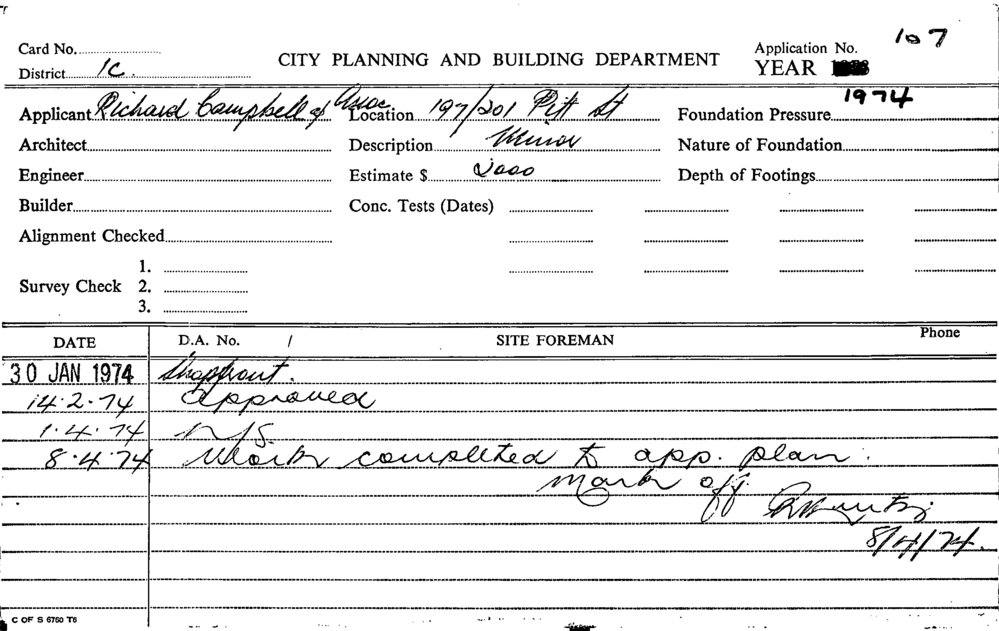 Card No. CITY PLANNING AND BUILDING DEPARTMENT Application No. 107
District 1C. YEAR 1974
Applicant Richard Campbell & Assoc Location 197/201 Pitt St Foundation Pressure
Architect Description Minor Nature of Foundation
Engineer Estimate $ 2000 Depth of Footings
Builder Conc. Tests (Dates)
Alignment Checked
1.
Survey Check 2.
3.
DATE D.A. No. / SITE FOREMAN Phone
30 JAN 1974 Shopfront.
14.2.74 approved
1.4.74 N/S.
8.4.74 Work completed to app. plan.
Mark off
8/4/74.
C OF S 6760 T6